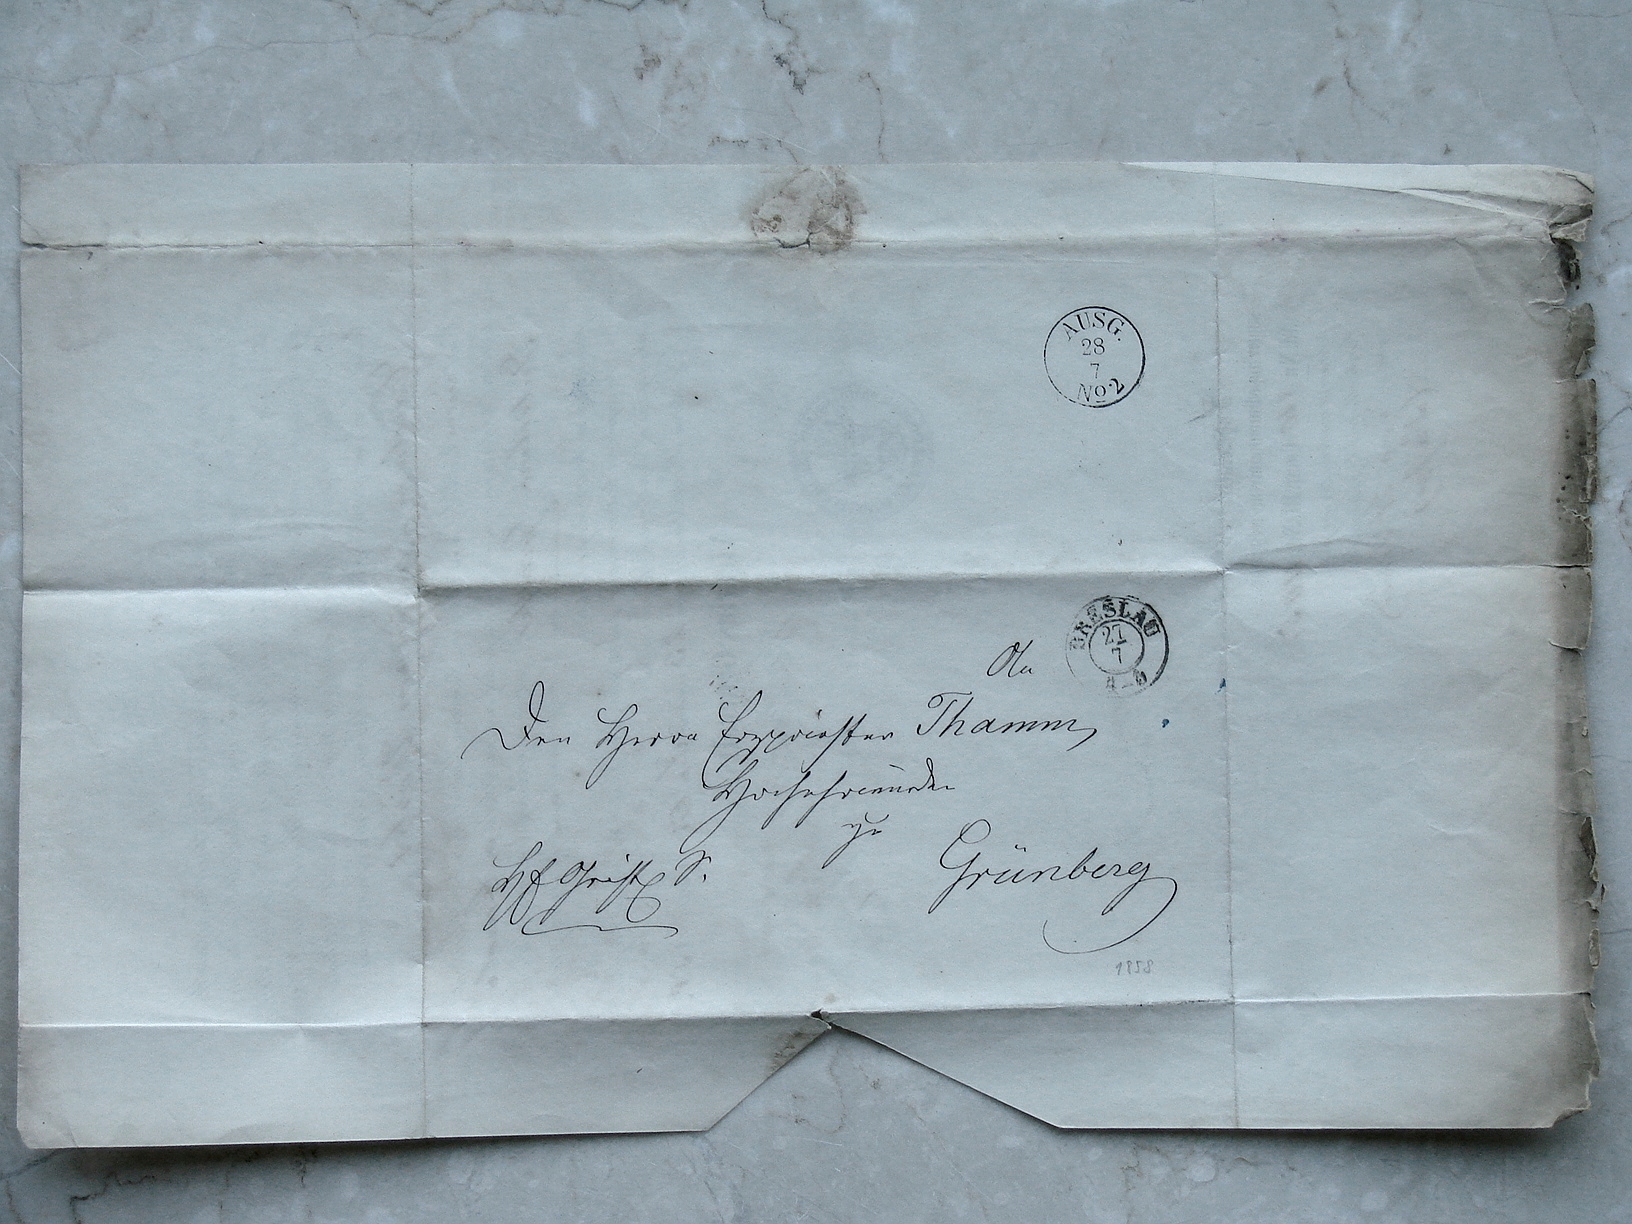 AUSG.
28
7
No 2
BRESLAU
27
7
An
Den Herrn Erzpriester Thamm,
Hochehrwürden
zu
Grünberg
1858